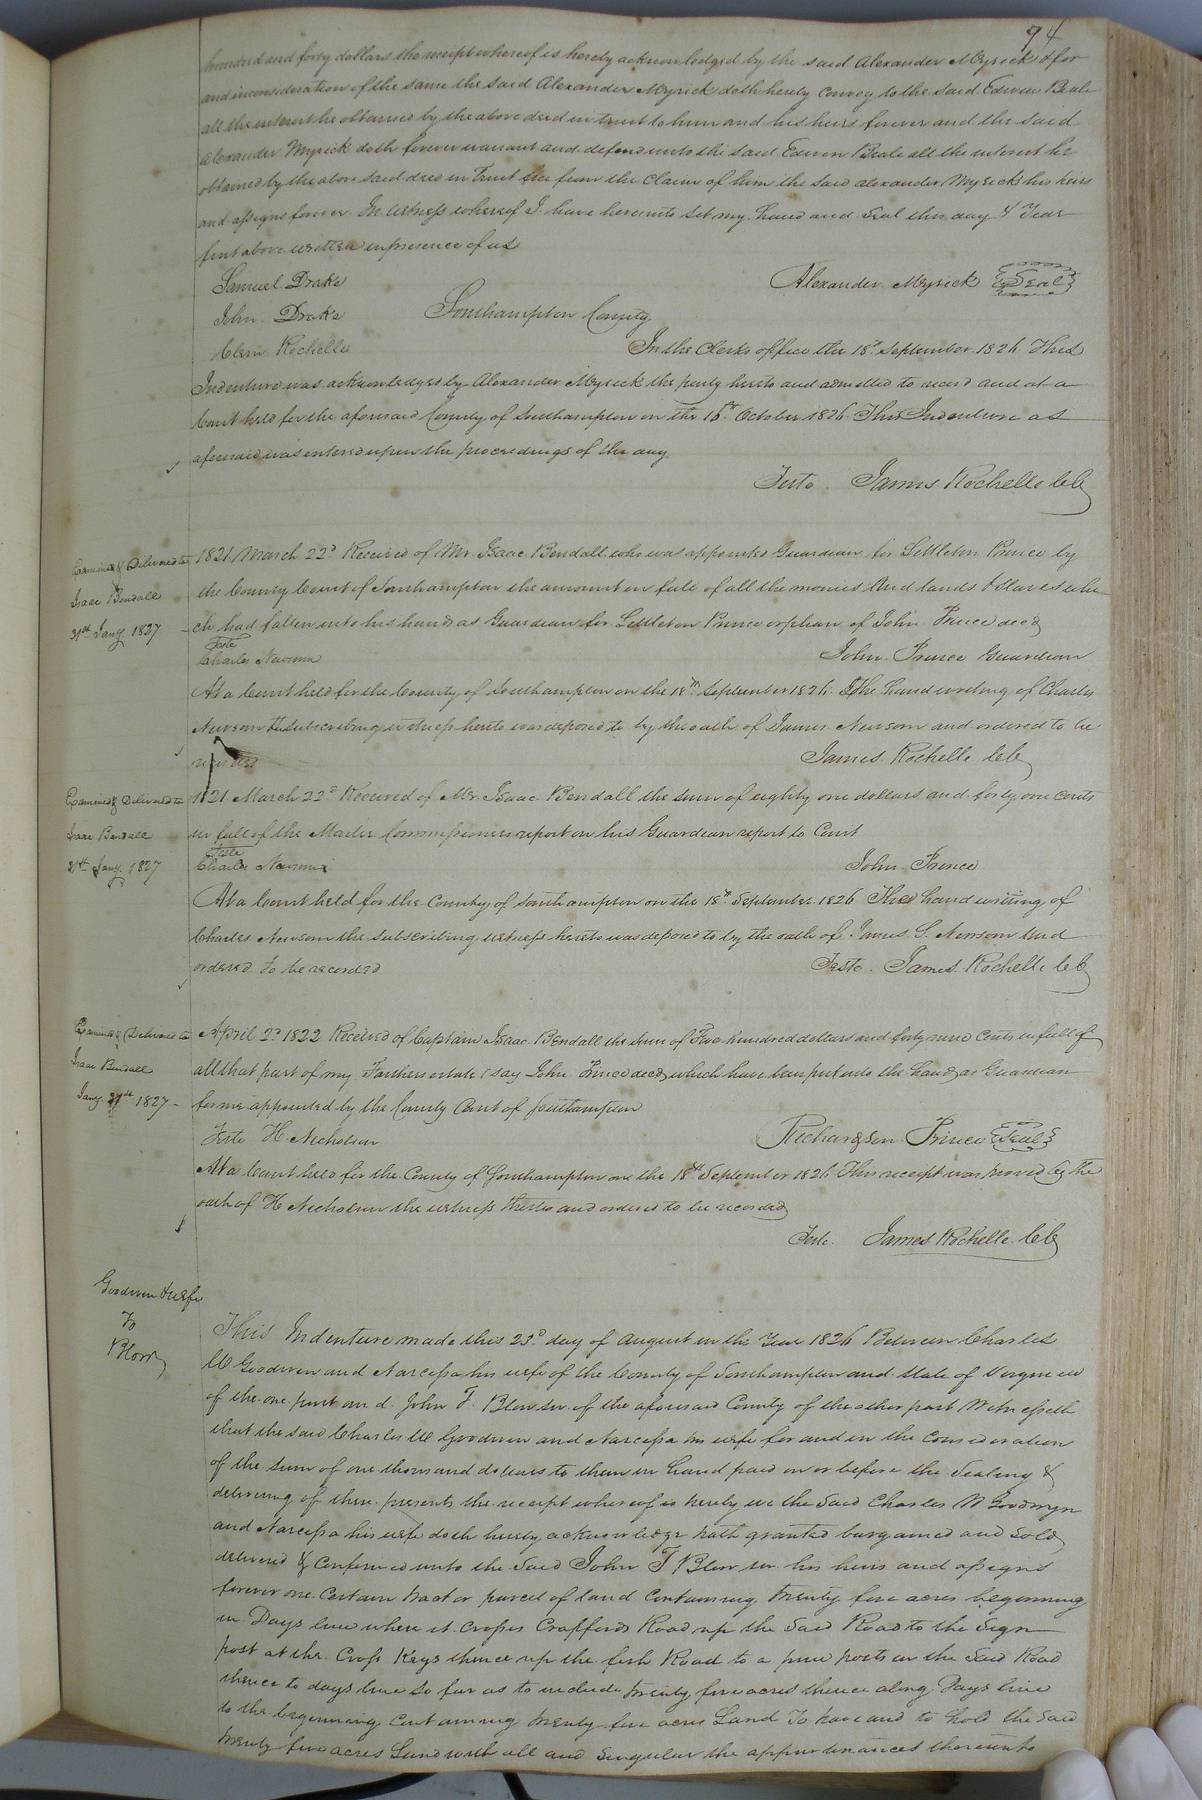 74
hundred and forty dollars the receipt whereof is hereby acknowledged by the said Alexander Myrick & for
and in consideration of the same the said Alexander Myrick doth hereby convey to the said Edwin Beale
all the interest he obtained by the above deed in trust to him and his heirs forever and the said
Alexander Myrick doth forever warrant and defend unto the said Edwin Beale all the interest he
obtained by the above said deed in Trust free from the Claim of him the said Alexander Myrick his heirs
and assigns forever. In Witness whereof I have hereunto set my hand and Seal this day & Year
first above written in presence of us
Samuel Drake
Alexander Myrick Seal
John Drake
Southampton County
Clem Rochelle
In the Clerks office the 18th September 1826 This
Indenture was acknowledged by Alexander Myrick the party hereto and admitted to record and at a
Court held for the aforesaid County of Southampton on the 16th October 1826 This Indenture as
aforesaid was entered upon the proceedings of the day
Teste James Rochelle CC
Examined & Delivered to
Isaac Bendall
31st Jany 1827
1821 March 22d Received of Mr Isaac Bendall who was appointed Guardian for Littleton Prince by
the County Court of Southampton the amount in full of all the monies And lands & slaves whi
ch had fallen into his hands as Guardian for Littleton Prince orphan of John Prince decd
Teste
Charles Newsom
John Prince Guardian
At a Court held for the County of Southampton on the 18th September 1826 The handwriting of Charles
Newsom the subscribing witness hereto was deposed to by the oath of James Newsom and ordered to be
recorded
James Rochelle CC
Examined & Delivered to
Isaac Bendall
31st Jany. 1827
1821 March 22d Received of Mr Isaac Bendall the sum of eighty one dollars and forty one cents
in full of the Master Commissioners report on his Guardian report to Court
Teste
Charles Newsom
John Prince
At a Court held for the County of Southampton on the 18th September 1826 The hand writing of
Charles Newsom the subscribing witness hereto was deposed to by the oath of James S. Newsom And
ordered to be recorded
Teste. James Rochelle CC
Examined & Delivered to
Isaac Bendall
Jany 31st 1827
April 2d 1822 Received of Captain Isaac Bendall the sum of Five hundred dollars and forty nine Cents in full of
all that part of my Fathers estate (say John Prince decd which have been put into the hands as Guardian
for me appointed by the County Court of Southampton
Teste H. Nicholson
Richardson Prince Seal
At a Court held for the County of Southampton on the 18th September 1826 This receipt was proved by the
oath of H Nicholson the witness thereto and ordered to be recorded
Teste. James Rochelle CC
Goodwin & wife
To
Blow
This Indenture made this 23d day of August in the Year 1826 Between Charles
W Goodwin and Narcissa his wife of the County of Southampton and State of Virginia
of the one part and John T. Blow sr. of the aforesaid County of the other part Witnesseth
that the said Charles W Goodwin and Narcissa his wife for and in the Consideration
of the Sum of one thousand dollars to them in hand paid on or before the Sealing &
delivering of these presents the receipt whereof is hereby we the Said Charles W Goodwyn
and Narcissa his wife doth hereby acknowledge hath granted bargained and Sold
delivered & Confirmed unto the Said John T Blow sr his heirs and assigns
forever one Certain tract or parcel of land Containing twenty five acres beginning
in Days line where it Crosses Craffords Road up the Said Road to the Sign
post at the Cross Keys thence up the fish Road to a pine posts in the Said Road
thence to days line So far as to include twenty five acres thence along Days line
to the beginning Containing twenty five acres Land To have and to hold the Said
twenty five acres Land with all and Singular the appurtenances thereunto